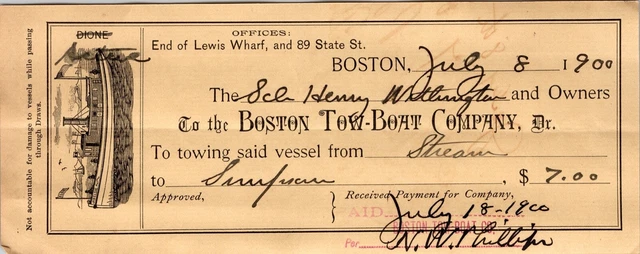 DIONE
OFFICES:
End of Lewis Wharf, and 89 State St.
BOSTON, July 8 1900
The Sch Henry Withington and Owners
To the BOSTON TOW-BOAT COMPANY, Dr.
To towing said vessel from Stream
to Simpson , $ 7.00
Approved, Received Payment for Company,
PAID July 18-1900
BOSTON TOW BOAT CO.
Per N. W. Phillips
Not accountable for damage to vessels while passing
through Draws.